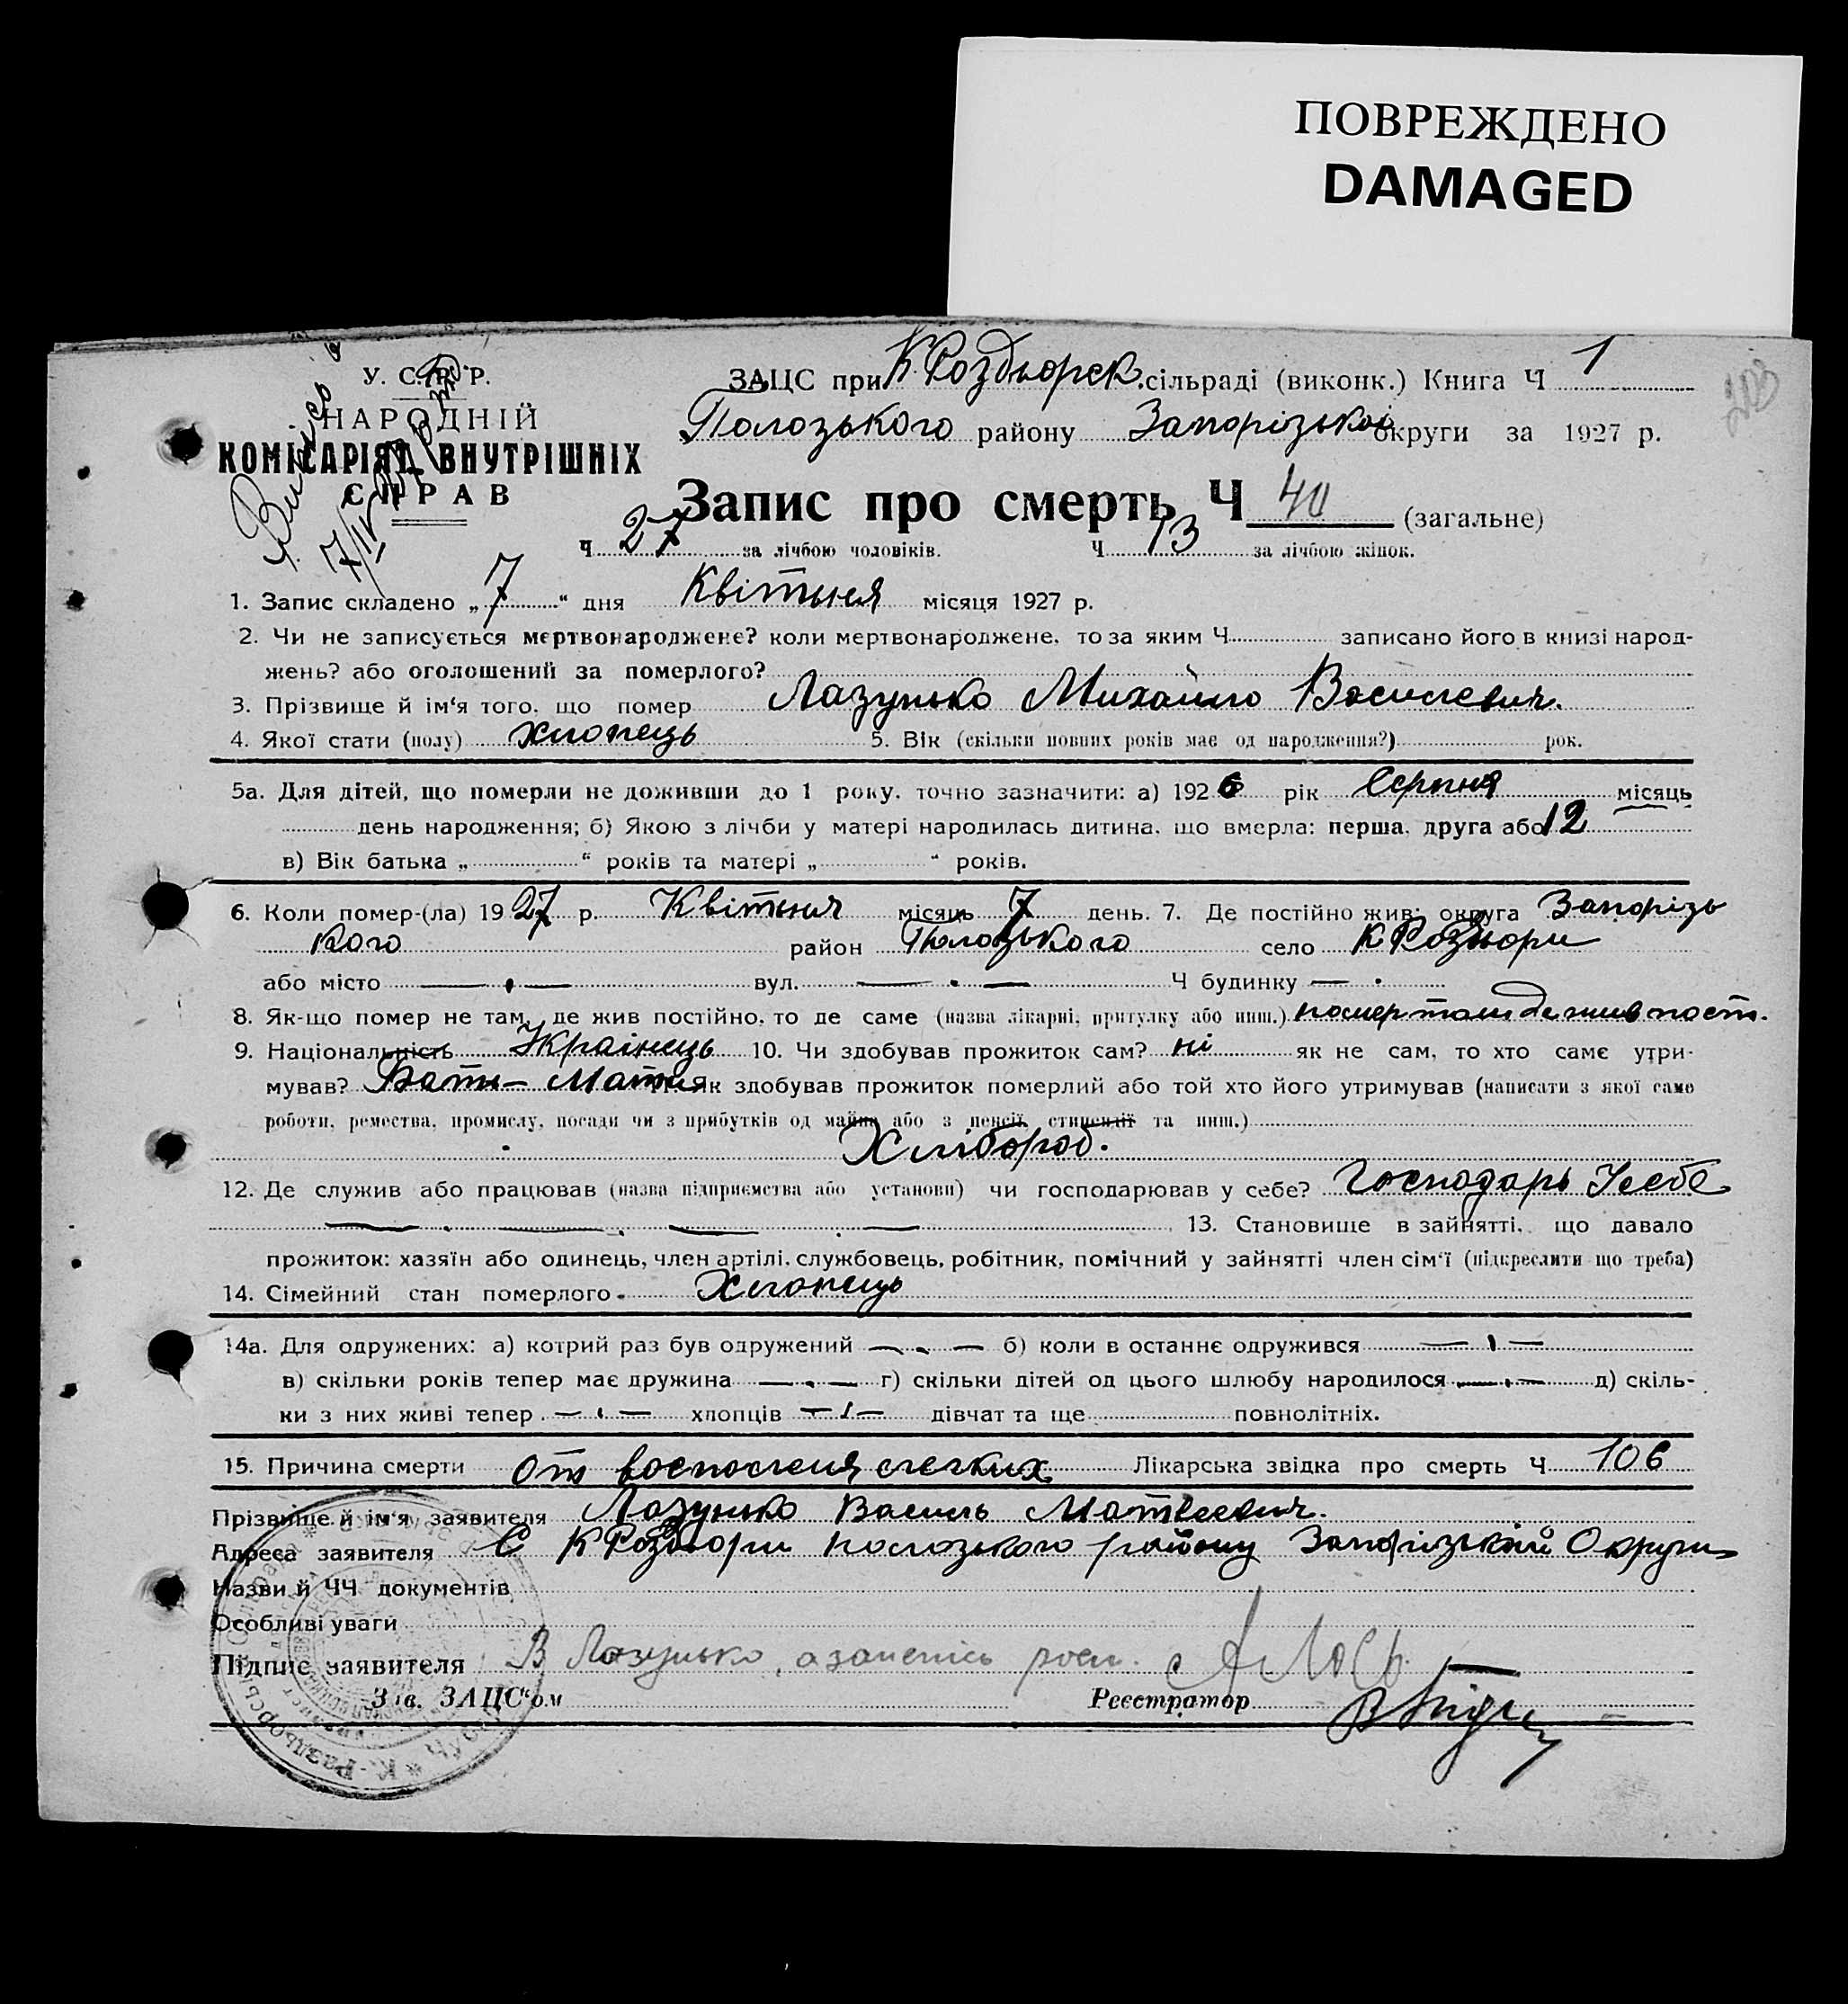 ПОВРЕЖДЕНО
DAMAGED
У. С. Р. Р.
НАРОДНІЙ
КОМІСАРІЯТ ВНУТРІШНІХ
СПРАВ
ЗАЦС при К Роздьорск. сільраді (виконк.) Книга Ч 1
Полозького району Запорізької округи за 1927 р.
Запис про смерть Ч 40 (загальне)
Ч 27 за лічбою чоловіків. Ч 13 за лічбою жінок.
1. Запис складено „ 7 “ дня Квітьня місяця 1927 р.
2. Чи не записується мертвонароджене? коли мертвонароджене, то за яким Ч записано його в книзі народ-
жень? або оголошений за померлого?
3. Прізвище й ім'я того, що помер Лазунько Михайло Василевич.
4. Якої стати (полу) хлопець 5. Вік (скільки повних років має од народження?) рок.
5а. Для дітей, що померли не доживши до 1 року, точно зазначити: а) 1926 рік Серпня місяць
день народження; б) Якою з лічби у матері народилась дитина, що вмерла: перша, друга або 12
в) Вік батька „ “ років та матері „ “ років.
6. Коли помер-(ла) 1927 р. Квітьня місяць 7 день. 7. Де постійно жив: округа Запорізь
кого район Полозького село К Роздьори
або місто — . — вул. — . — Ч будинку — .
8. Як-що помер не там, де жив постійно, то де саме (назва лікарні, притулку або инш.) помер там де жив пост.
9. Національність Українець 10. Чи здобував прожиток сам? ні як не сам, то хто саме утри-
мував? Бать- Мати 11. Як здобував прожиток померлий або той хто його утримував (написати з якої само
роботи, ремества, промислу, посади чи з прибутків од майна або з пенсії, стипендії та инш.)
Хлібороб.
12. Де служив або працював (назва підприємства або установи) чи господарював у себе? Господарь Усебе
— . — . — . — 13. Становище в зайнятті, що давало
прожиток: хазяїн або одинець, член артілі, службовець, робітник, помічний у зайнятті член сім'ї (підкреслити що треба)
14. Сімейний стан померлого Хлопець
14а. Для одружених: а) котрий раз був одружений — . — б) коли в останнє одружився — . —
в) скільки років тепер має дружина — . — г) скільки дітей од цього шлюбу народилося — . — д) скіль-
ки з них живі тепер — . — хлопців — . — дівчат та ще повнолітніх.
15. Причина смерти от восполения легких Лікарська звідка про смерть Ч 106
Прізвище й ім'я заявителя Лазунько Василь Матвеевич.
Адреса заявителя С К Роздьори полозького району Запорізькій Округи
Назви й ЧЧ документів
Особливі уваги
Підпис заявителя В Лазунько,
Зав. ЗАЦС'ом Реєстратор